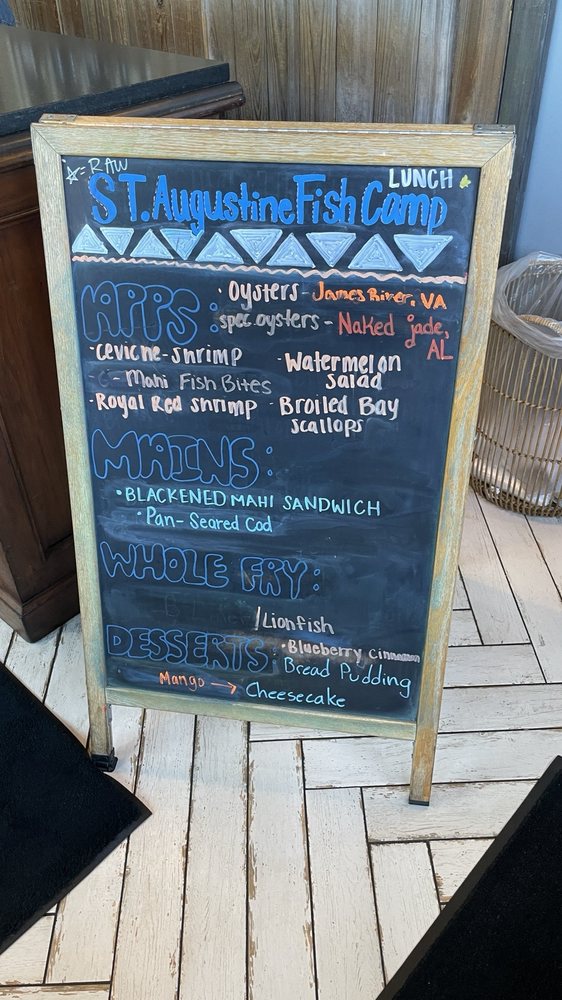 RAW
LUNCH
ST. Augustine Fish Camp
APPS:
• Oysters - James River, VA
spec. oysters - Naked jade, AL
• ceviche - shrimp
• Watermelon salad
- Mahi Fish Bites
• Royal Red shrimp
• Broiled Bay scallops
MAINS:
• BLACKENED MAHI SANDWICH
• Pan-Seared Cod
WHOLE FRY:
/Lionfish
DESSERTS:
• Blueberry cinnamon
Bread Pudding
Mango → Cheesecake